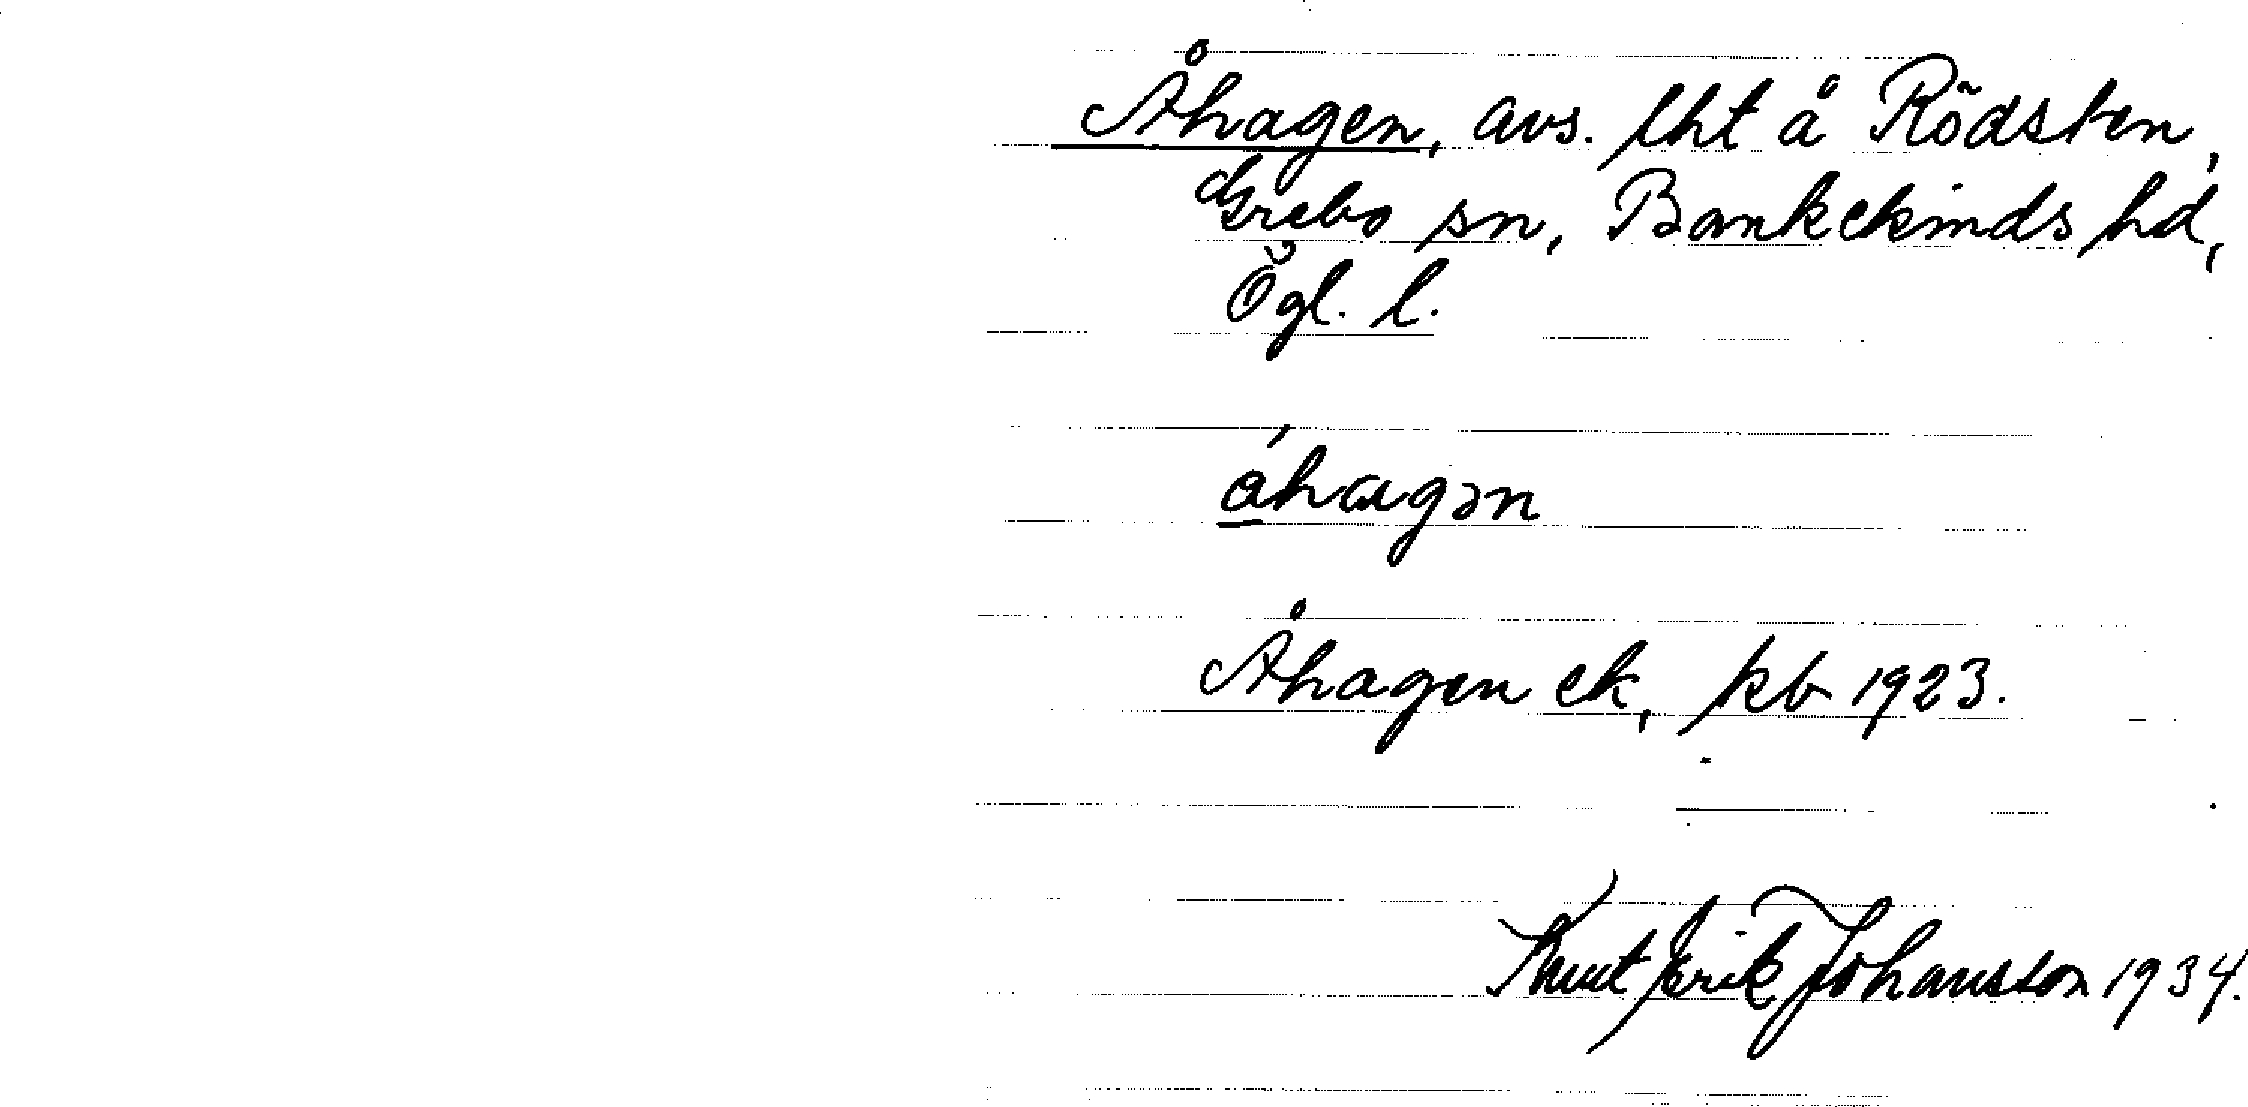 Åhagen, avs. lht å Rödsten,
Grebo sn, Bankekinds hd,
Ögl. l.
á̲hagən
Åhagen ek, kb 1923.
Knut Erik Johansson 1934.